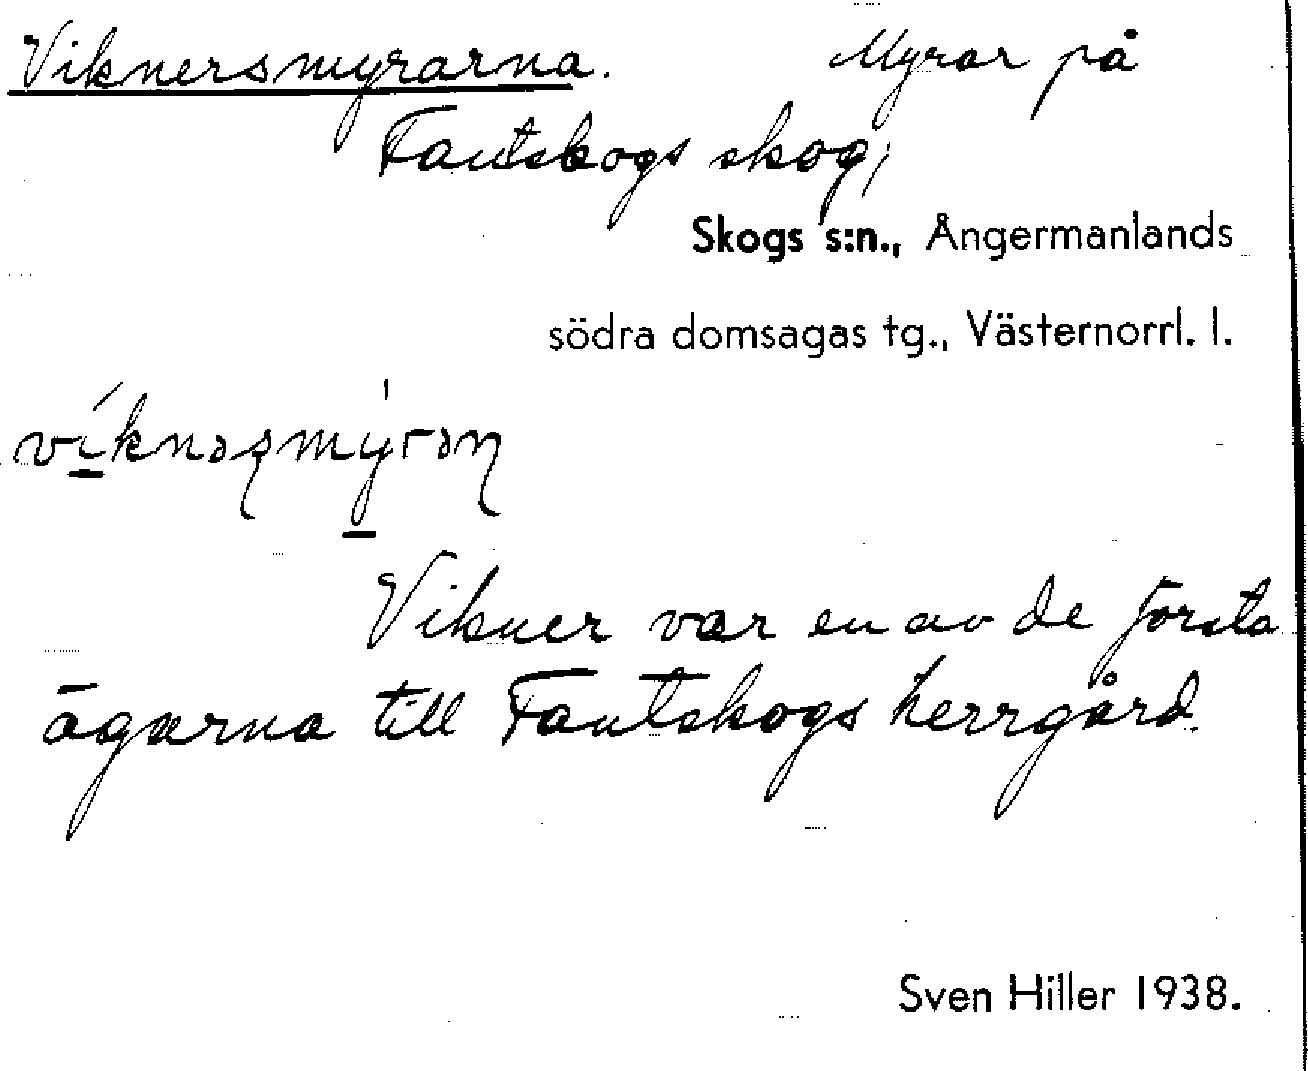 Viknersmyrarna. Myrar på
Fantskogs skog,
Skogs s:n., Ångermanlands
södra domsagas tg., Västernorrl. l.
Vikner var en av de första
ägarna till Fantskogs herrgård.
Sven Hiller 1938.